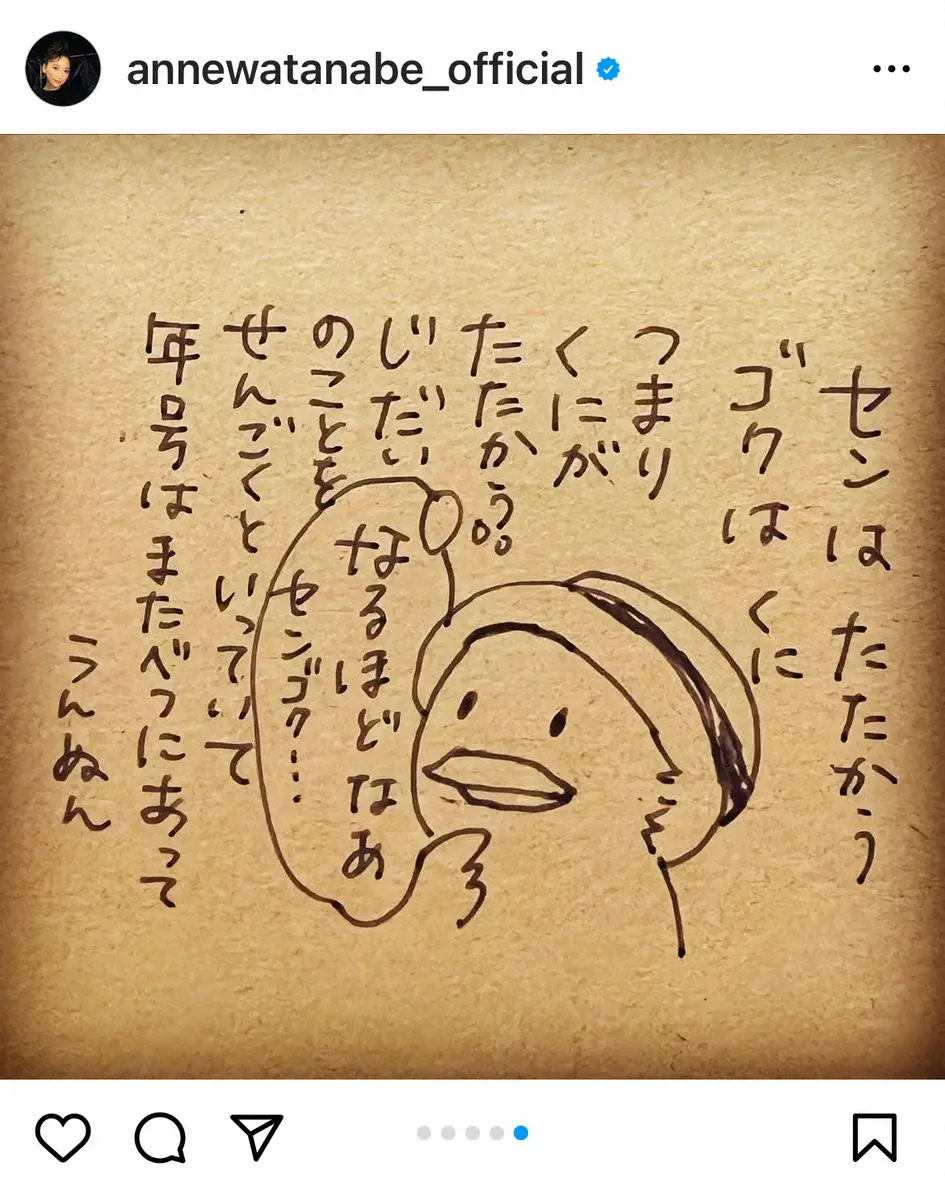 annewatanabe_official
センは たたかう
ゴクは くに
つまり
くにが
たたかう。
じだい
のことを
せんごくと いっていて
年号はまたべつにあって
うんぬん
なるほどなあ
センゴク…